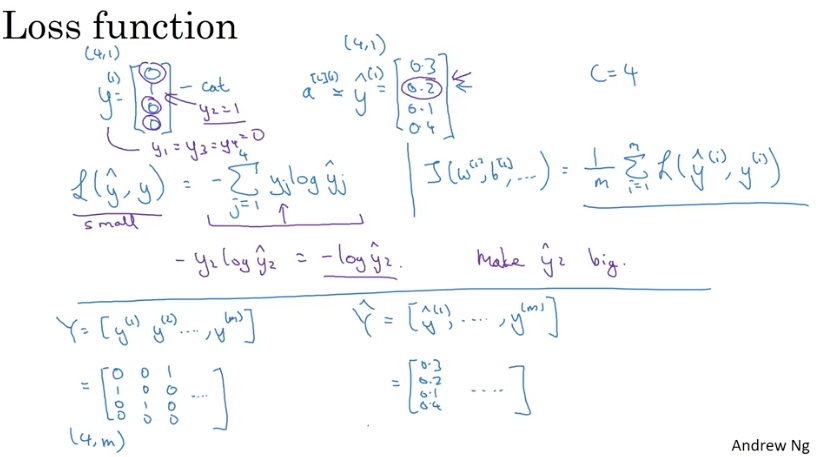 Loss function
(4,1)
y⁽¹⁾ = [0 1 0 0] - cat
y₂=1
y₁ = y₃ = y₄ = 0
(4,1)
a^[L](1) = ŷ⁽¹⁾ = [0.3 0.2 0.1 0.4]
C=4
L(ŷ, y) = - Σ_{j=1}^{4} yⱼ log ŷⱼ
small
J(w^[1], b^[1], ...) = 1/m Σ_{i=1}^{m} L(ŷ⁽ⁱ⁾, y⁽ⁱ⁾)
- y₂ log ŷ₂ = - log ŷ₂. Make ŷ₂ big.
Y = [y⁽¹⁾ y⁽²⁾ ...., y⁽ᵐ⁾]
Ŷ = [ŷ⁽¹⁾, ...., y⁽ᵐ⁾]
= [0 0 1
1 0 0 ....
0 1 0
0 0 0]
(4,m)
= [0.3
0.2
0.1 ....
0.4]
Andrew Ng